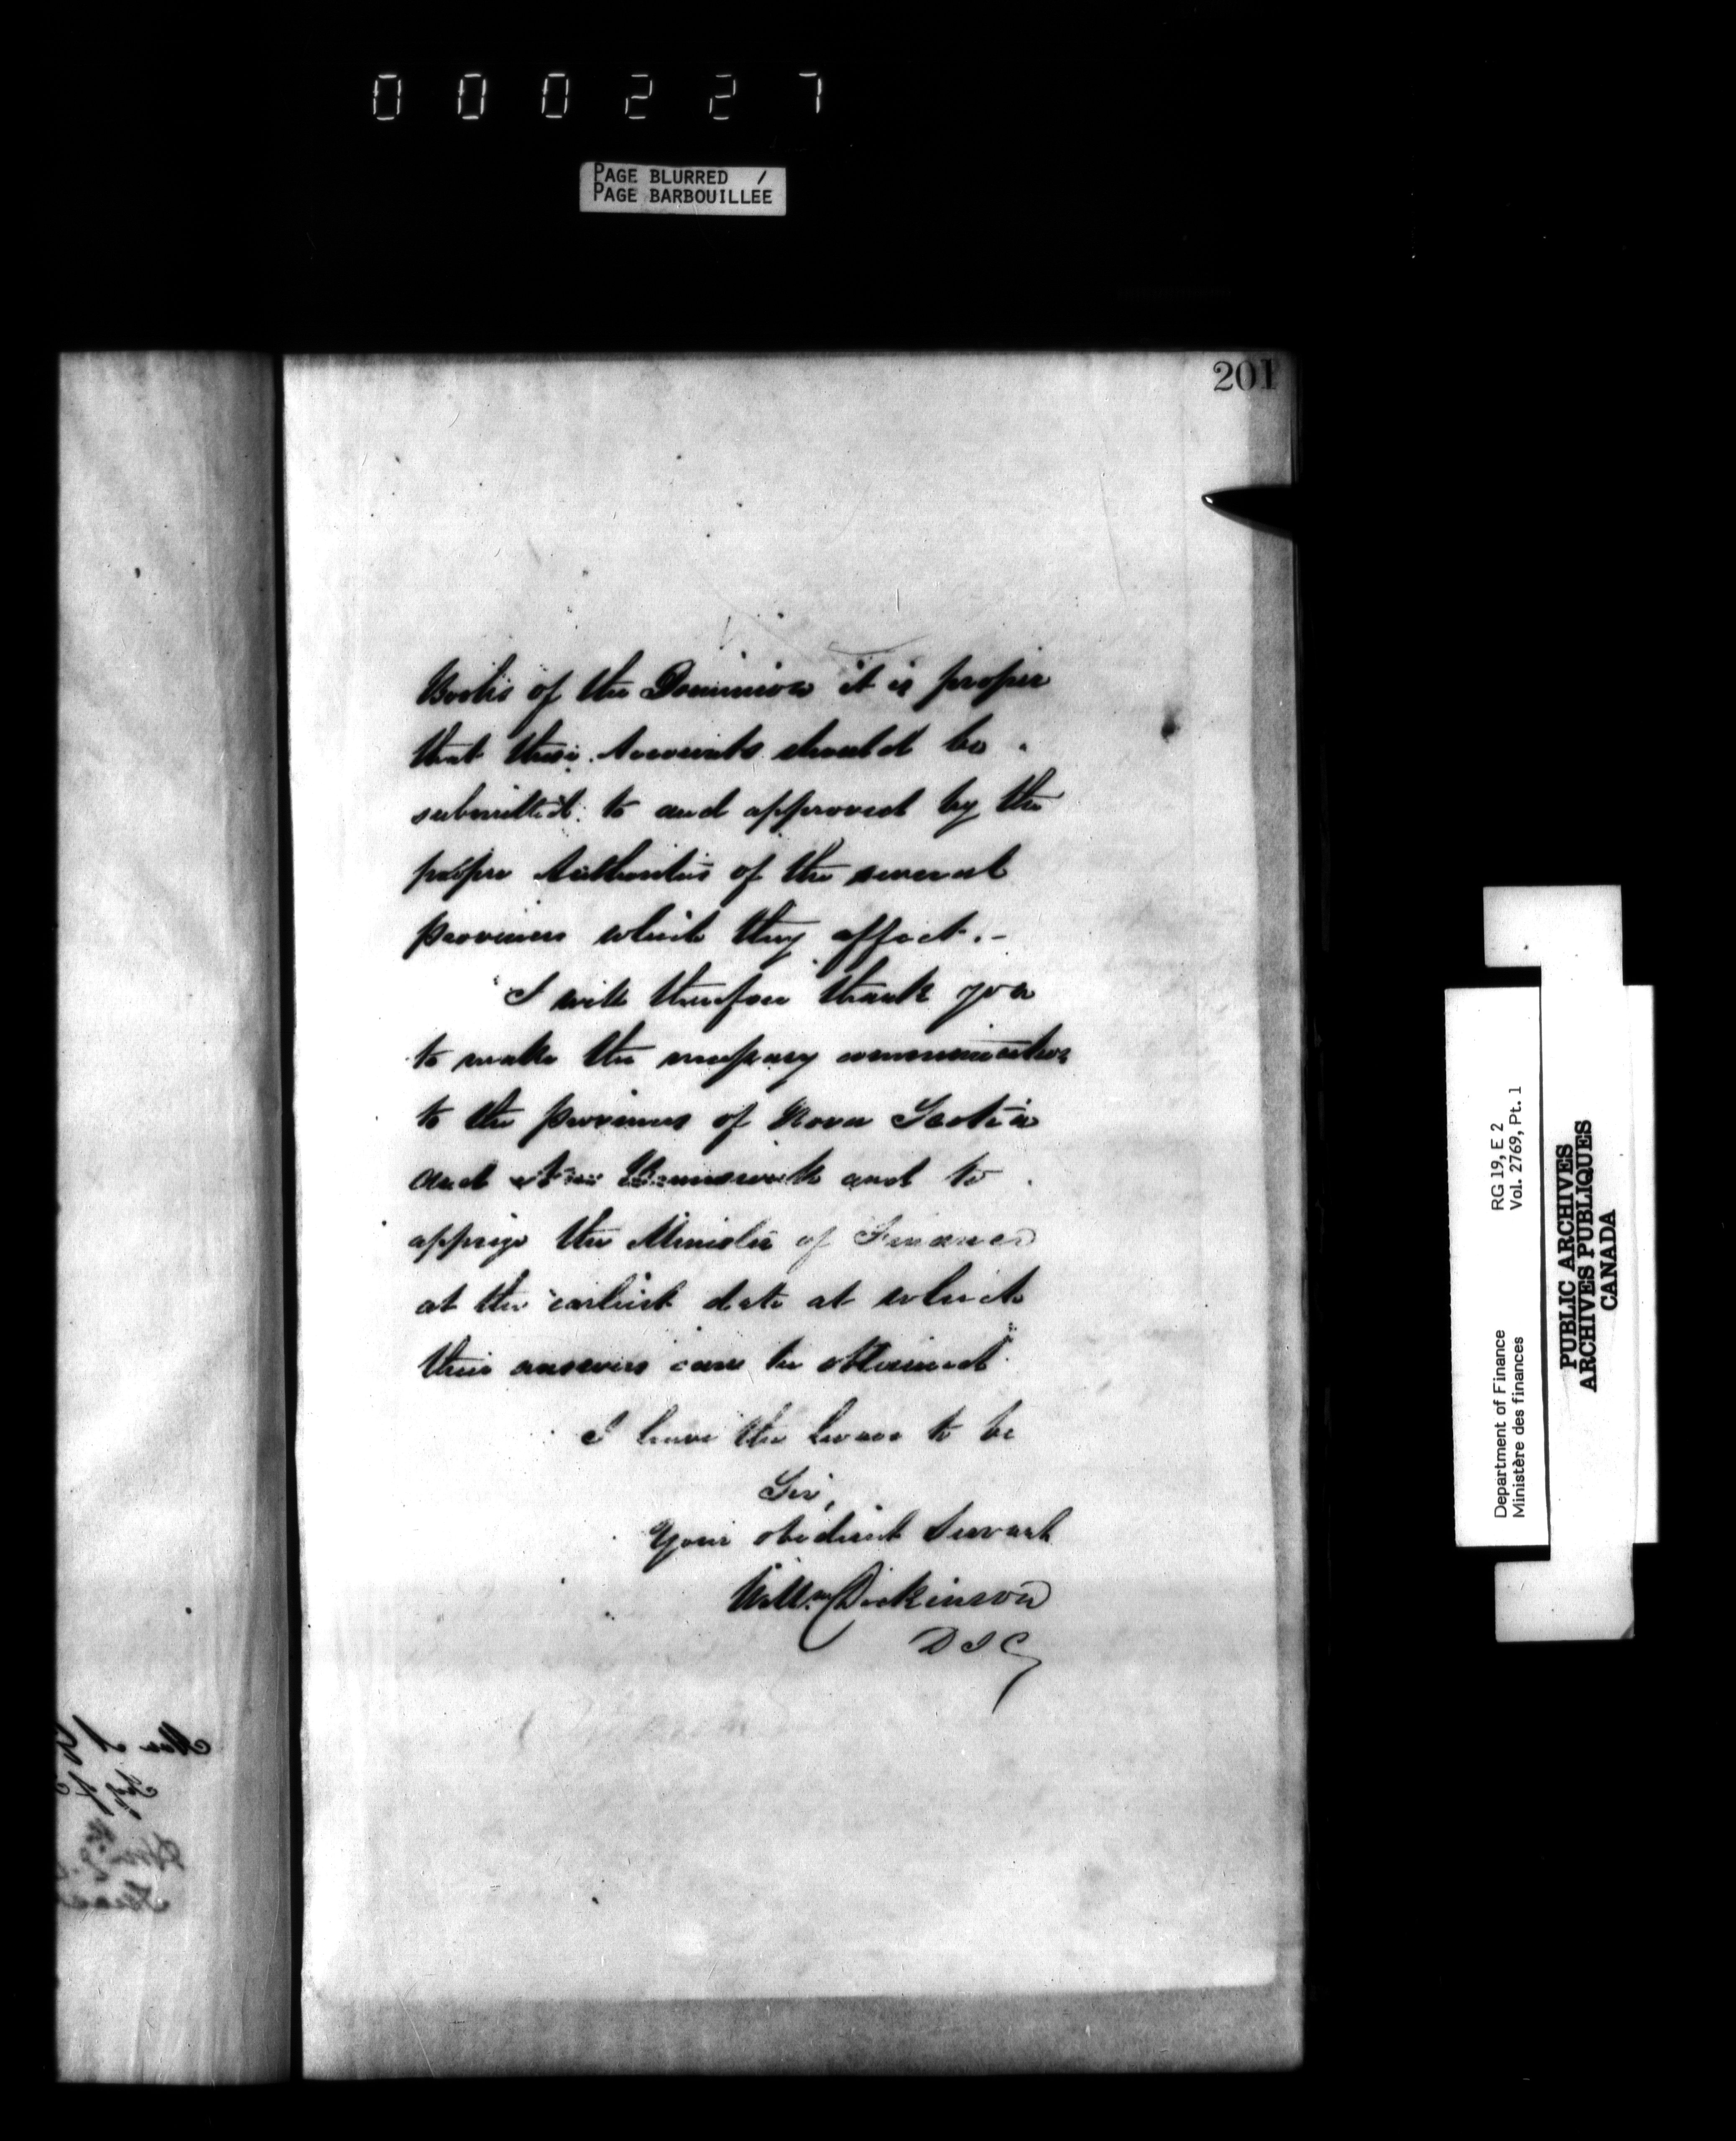 000227
PAGE BLURRED /
PAGE BARBOUILLEE
201
Books of the Dominion it is proper
that these Accounts should be
submitted to and approved by the
proper Authorities of the several
provinces which they affect.-
I will therefore thank you
to make the necessary communication
to the provinces of Nova Scotia
and New Brunswick and to
apprize the Minister of Finance
at the earliest date at which
their answers can be obtained
I have the honor to be
Sir,
Your obedient Servant
Willm Dickinson
D I G
Department of Finance RG 19, E 2
Ministère des finances Vol. 2769, Pt. 1
PUBLIC ARCHIVES
ARCHIVES PUBLIQUES
CANADA